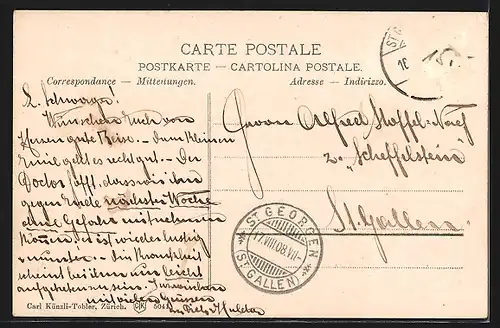 CARTE POSTALE
POSTKARTE – CARTOLINA POSTALE.
Correspondance — Mitteilungen.
Adresse — Indirizzo.
15.-
L. Schwager!
Wünschen Euch von
Herzen gute Reise. – Dem kleinen
geht es recht gut. – Der
Doctor hofft, dass wir ihn
gegen Ende nächster Woche
ohne Gefahr mitnehmen
können; er ist wieder lustig
& munter. – Die Krankheit
scheint bei ihm nur leicht
aufgetreten zu sein.
mit vielen Grüssen
Herrn Alfred Stoffel-Naef
z. "Scheffelstein"
St. Gallen.
ST. GEORGEN
17.VIII.08.VII-
(ST. GALLEN)
Carl Künzli-Tobler, Zürich.